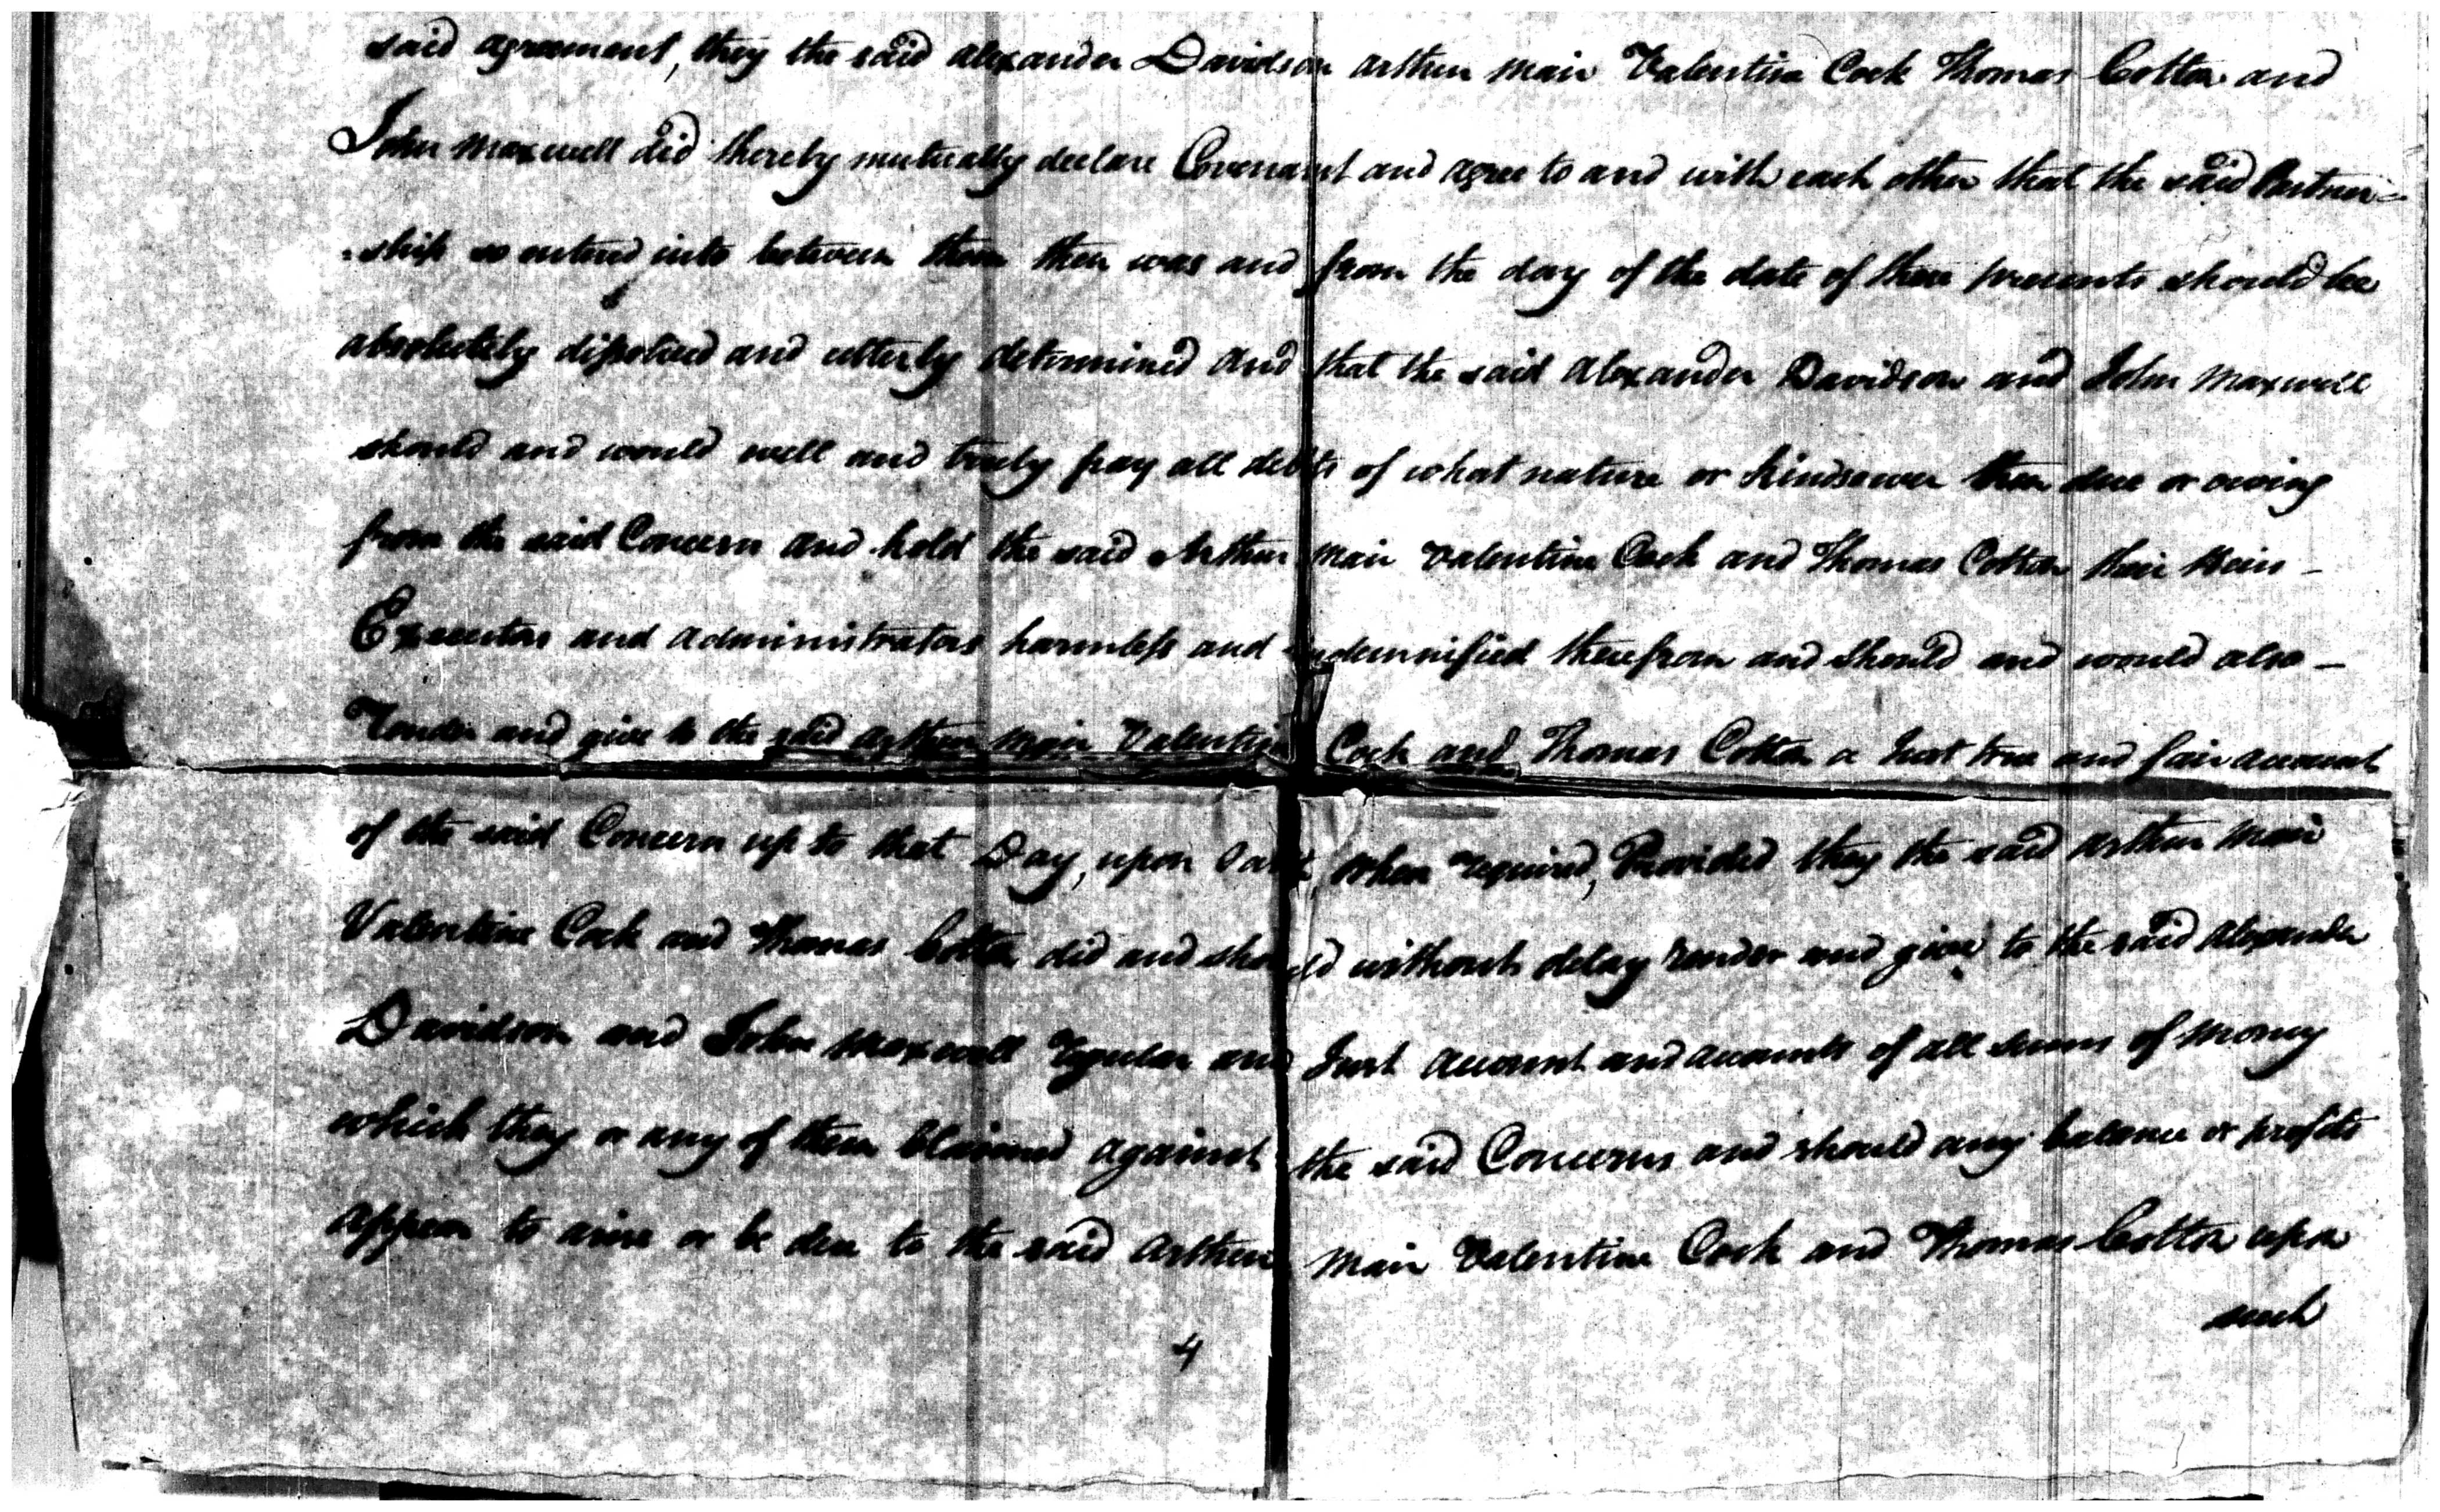 said agreement, they the said Alexander Davidson Arthur Mair Valentine Cock Thomas Cotton and
John Maxwell did thereby mutually declare Covenant and agree to and with each other that the said Partner-
-ship so entered into between them then was and from the day of the date of these presents should be
absolutely dissolved and utterly determined and that the said Alexander Davidson and John Maxwell
should and would well and truly pay all debts of what nature or kindsoever then due or owing
from the said Concern and hold the said Arthur Mair Valentine Cock and Thomas Cotton their Heirs -
Executors and Administrators harmless and indemnified therefrom and should and would also -
Render and give to the said Arthur Mair Valentine Cock and Thomas Cotton a Just true and fair account
of the said Concern up to that Day, upon Oath, when required, Provided they the said Arthur Mair
Valentine Cock and Thomas Cotton did and should without delay render and give to the said Alexander
Davidson and John Maxwell regular and Just account and accounts of all sums of Money
which they or any of them claimed against the said Concerns and should any balance or profits
appear to arise or be due to the said Arthur Mair Valentine Cock and Thomas Cotton upon
such
4